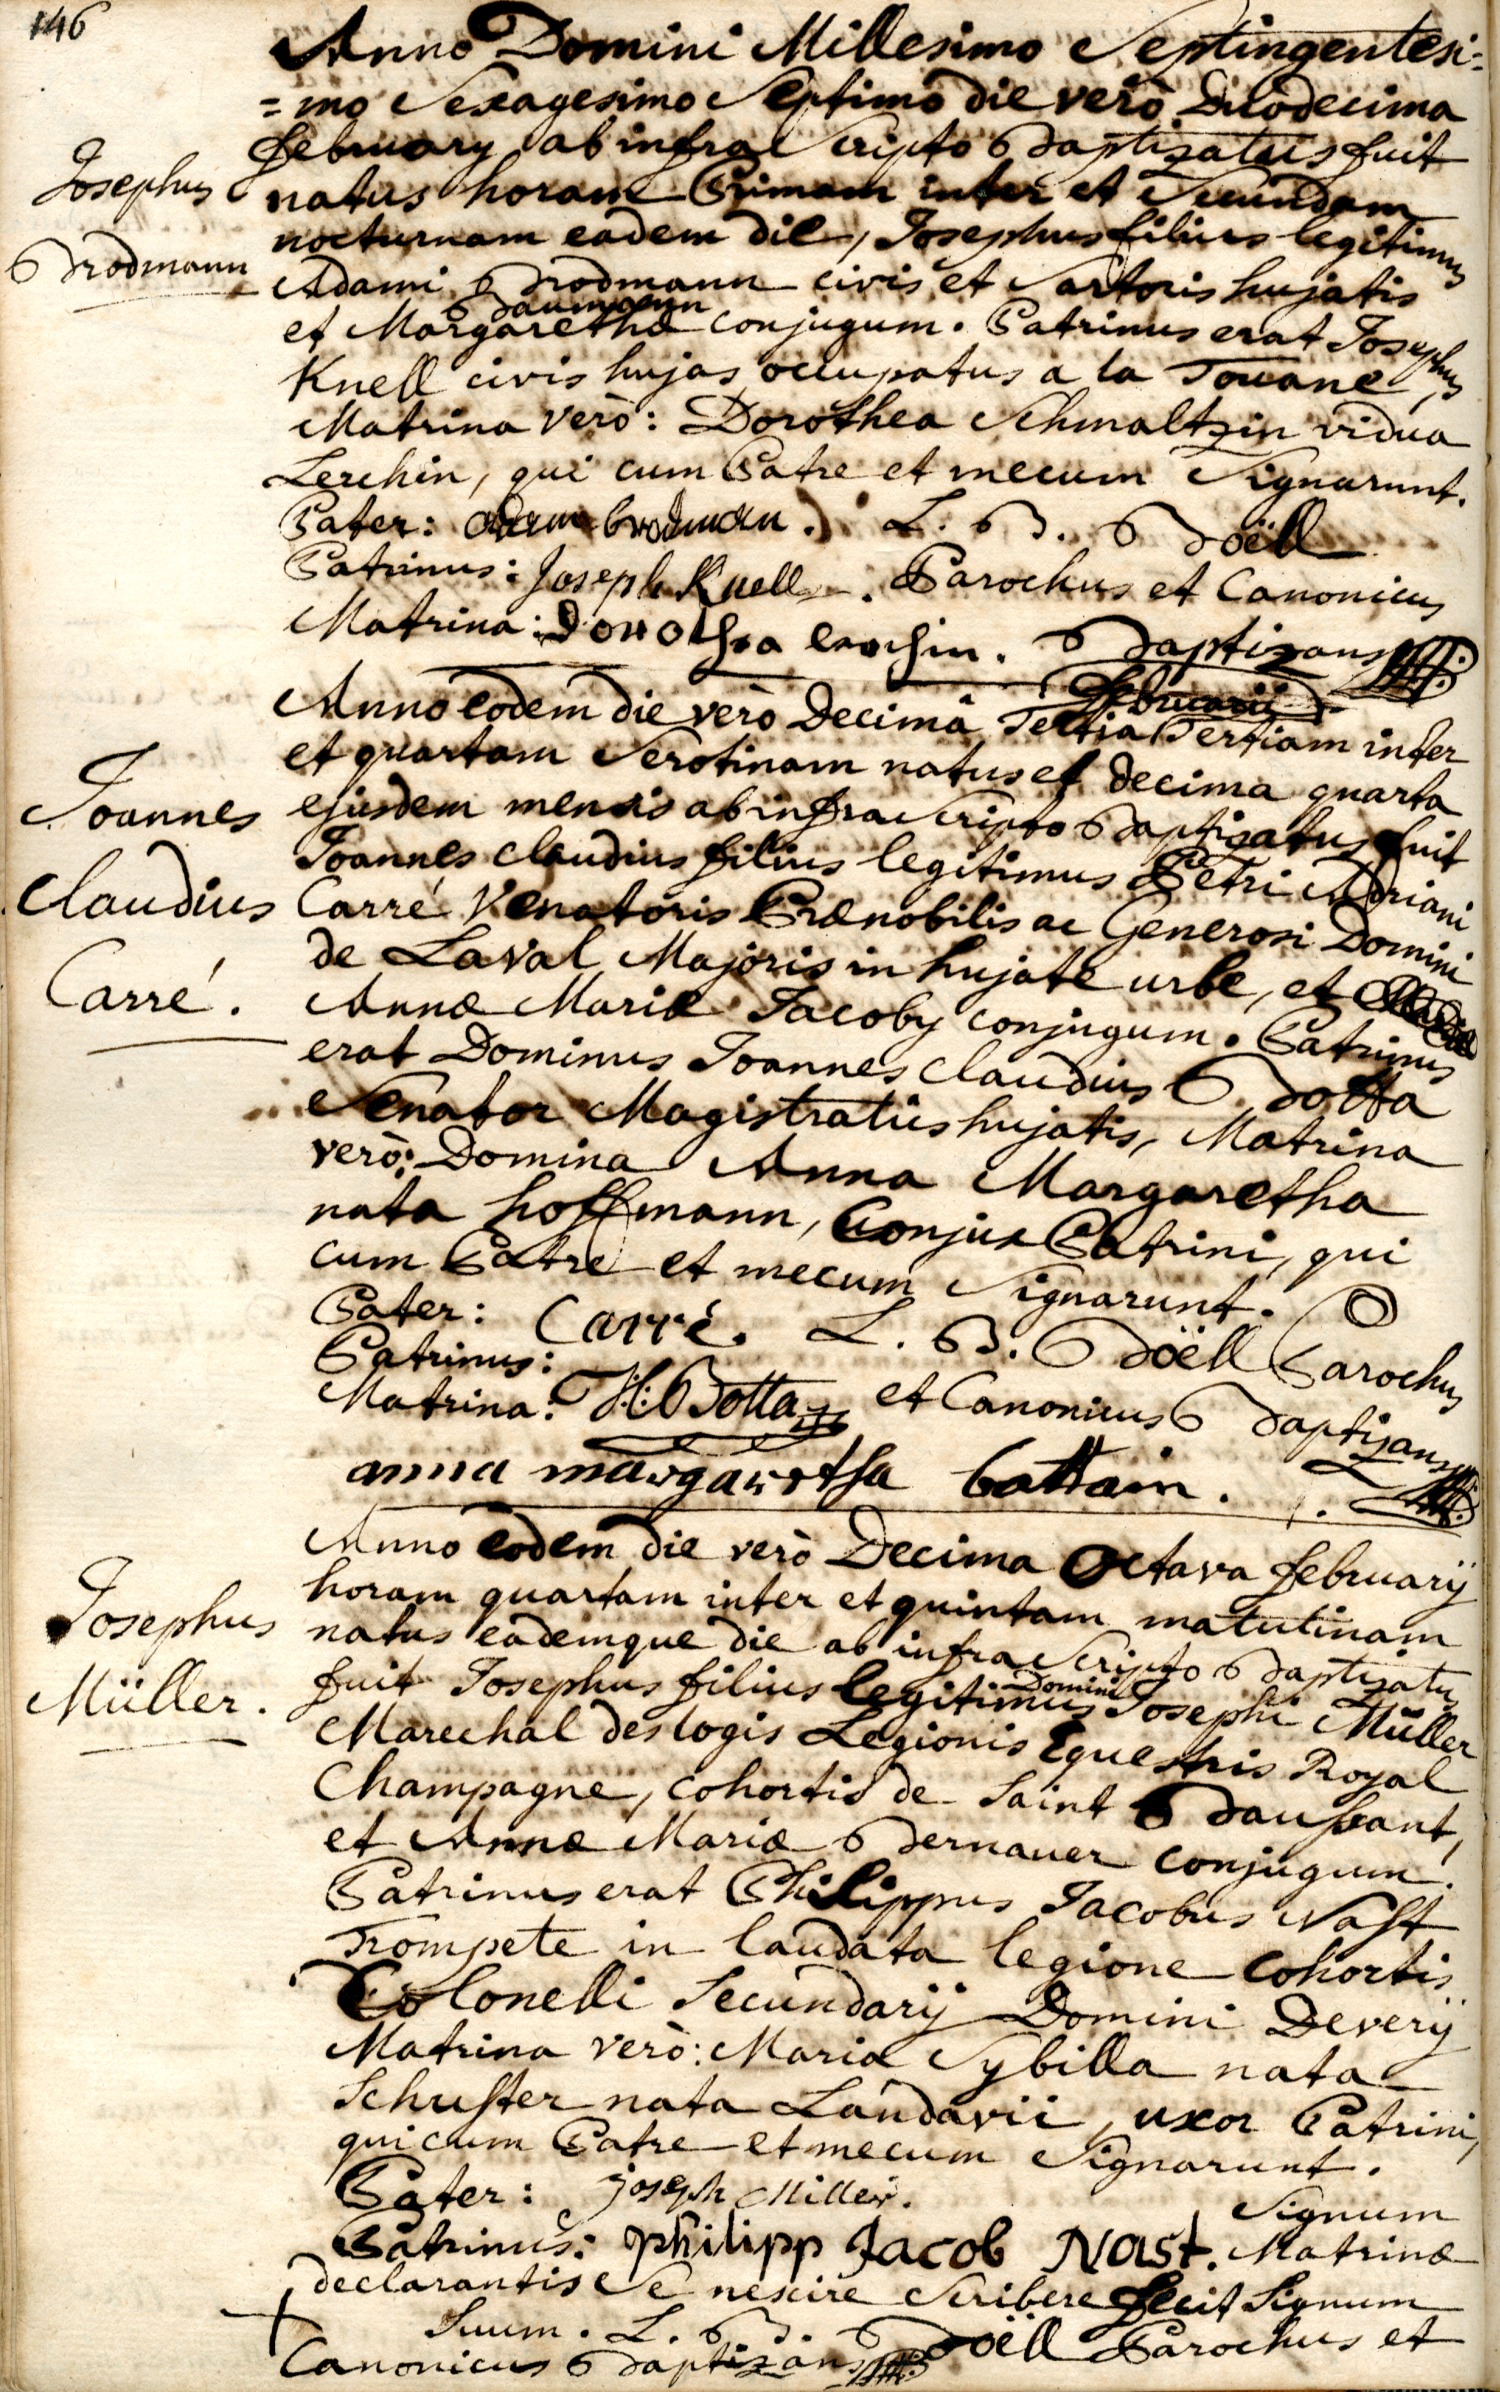 146
Anno Domini Millesimo Septingentesi=
=mo Sexagesimo Septimo die verò Duodecima
february ab infra Scripto Baptizatus fuit
Josephus
natus horam Primam inter et Secundam
nocturnam eadem die, Josephus filius legitimus
Brodmann
Adami Brodmann civis et Sartoris hujatis
Baumann
et Margaretha conjugum. Patrinus erat Josephus
Knell civis hujas occupatus a la Touane,
Matrina verò: Dorothea Schmaltzin vidua
Lerchin, qui cum Patre et mecum Signarunt.
Pater: adam brodman. L. B. Boëll
Patrinus: Joseph Knell. Parochus et Canonicus
Matrina: Dorothea lerchin. Baptizans
februarii
Anno eodem die verò Decimâ Tertia Tertiam inter
et quartam Serotinam natus et decima quarta
Joannes
ejusdem mensis ab infra Scripto Baptizatus fuit
Joannes claudius filius legitimus Petri Adriani
Claudius
Carré Venatoris Prænobilis ac Generosi Domini
de Laval Majoris in hujate urbe, et
Carré.
Annæ Mariæ Jacoby conjugum. Patrinus
erat Dominus Joannes claudius Botta
Senator Magistratûs hujatis, Matrina
verò: Domina Anna Margaretha
nata hoffmann, Conjux Patrini, qui
cum Patre et mecum Signarunt.
Pater: Carré. L. B. Boëll Parochus
Patrinus:
Matrina: Botta et Canonicus Baptizans
anna margaretha bottain.
Anno eodem die verò Decima Octava februarij
horam quartam inter et quintam matutinam
Josephus
natus eademque die ab infra Scripto Baptizatus
Domini
fuit Josephus filius legitimus Josephi Müller
Müller.
Marechal des logis Legionis Equestris Royal
Champagne, cohortis de Saint
et Annæ Mariæ Bernauer conjugum.
Patrinus erat Philippus Jacobus Nast
Trompete in laudata legione cohortis
Colonelli Secundarij Domini Deverij
Matrina verò: Maria Sybilla nata
Schuster nata Landavii, uxor Patrini,
qui cum Patre et mecum Signarunt.
Pater: Joseph Miller.
Signum
Patrinus: Philipp Jacob Nast. Matrinæ
declarantis Se nescire Scribere fecit Signum
+ Suum. L. B. Boëll Parochus et
Canonicus Baptizans